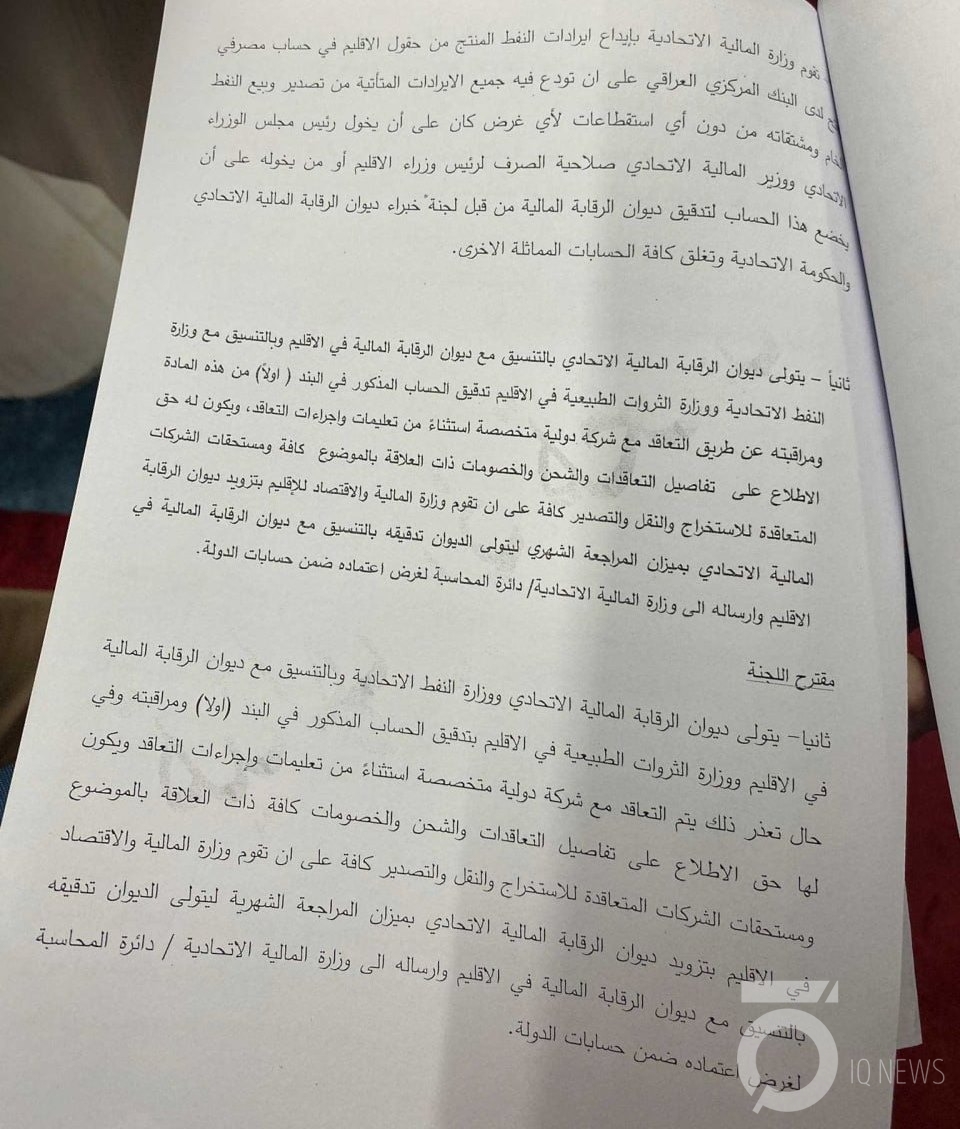 تقوم وزارة المالية الاتحادية بإيداع ايرادات النفط المنتج من حقول الاقليم في حساب مصرفي
لدى البنك المركزي العراقي على ان تودع فيه جميع الايرادات المتأتية من تصدير وبيع النفط
الخام ومشتقاته من دون أي استقطاعات لأي غرض كان على أن يخول رئيس مجلس الوزراء
الاتحادي ووزير المالية الاتحادي صلاحية الصرف لرئيس وزراء الاقليم أو من يخوله على أن
يخضع هذا الحساب لتدقيق ديوان الرقابة المالية من قبل لجنة خبراء ديوان الرقابة المالية الاتحادي
والحكومة الاتحادية وتغلق كافة الحسابات المماثلة الاخرى.
ثانياً – يتولى ديوان الرقابة المالية الاتحادي بالتنسيق مع ديوان الرقابة المالية في الاقليم وبالتنسيق مع وزارة
النفط الاتحادية ووزارة الثروات الطبيعية في الاقليم تدقيق الحساب المذكور في البند ( اولاً) من هذه المادة
ومراقبته عن طريق التعاقد مع شركة دولية متخصصة استثناءً من تعليمات واجراءات التعاقد، ويكون له حق
الاطلاع على تفاصيل التعاقدات والشحن والخصومات ذات العلاقة بالموضوع كافة ومستحقات الشركات
المتعاقدة للاستخراج والنقل والتصدير كافة على ان تقوم وزارة المالية والاقتصاد للإقليم بتزويد ديوان الرقابة
المالية الاتحادي بميزان المراجعة الشهري ليتولى الديوان تدقيقه بالتنسيق مع ديوان الرقابة المالية في
الاقليم وارساله الى وزارة المالية الاتحادية/ دائرة المحاسبة لغرض اعتماده ضمن حسابات الدولة.
مقترح اللجنة
ثانيا– يتولى ديوان الرقابة المالية الاتحادي ووزارة النفط الاتحادية وبالتنسيق مع ديوان الرقابة المالية
في الاقليم ووزارة الثروات الطبيعية في الاقليم بتدقيق الحساب المذكور في البند (اولا) ومراقبته وفي
حال تعذر ذلك يتم التعاقد مع شركة دولية متخصصة استثناءً من تعليمات وإجراءات التعاقد ويكون
لها حق الاطلاع على تفاصيل التعاقدات والشحن والخصومات كافة ذات العلاقة بالموضوع
ومستحقات الشركات المتعاقدة للاستخراج والنقل والتصدير كافة على ان تقوم وزارة المالية والاقتصاد
في الاقليم بتزويد ديوان الرقابة المالية الاتحادي بميزان المراجعة الشهرية ليتولى الديوان تدقيقه
بالتنسيق مع ديوان الرقابة المالية في الاقليم وارساله الى وزارة المالية الاتحادية / دائرة المحاسبة
لغرض اعتماده ضمن حسابات الدولة.
IQ NEWS